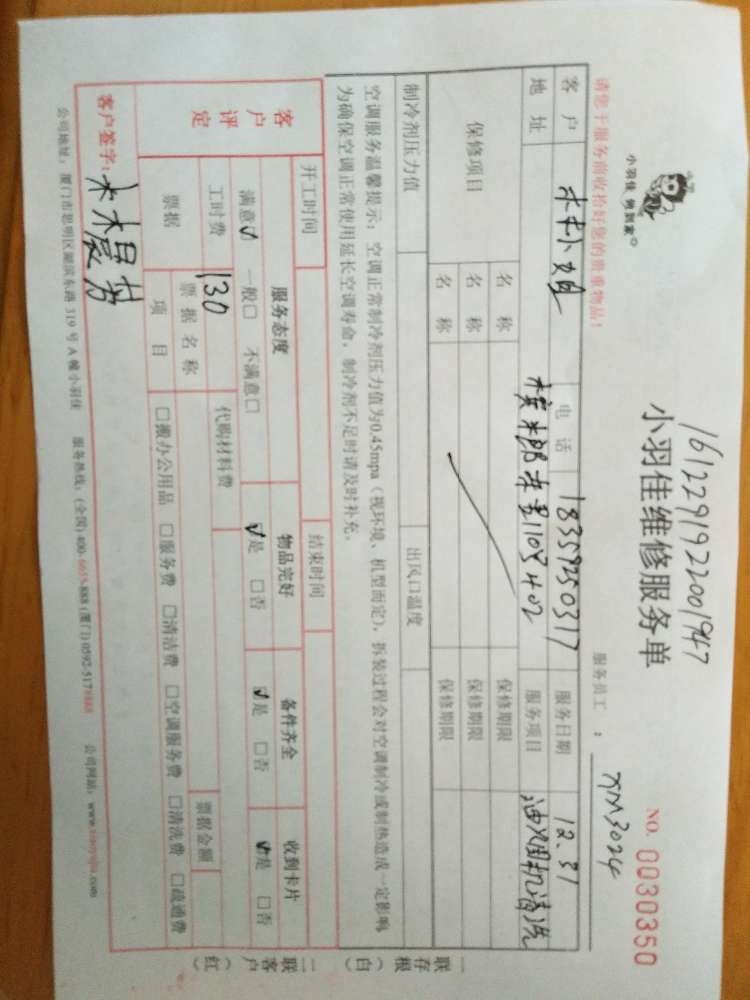 小羽佳 佣到家
请您于服务前收拾好您的贵重物品!
1612291922001947
小羽佳维修服务单
NO. 0030350
服务员工 : XM3024
客户 林小姐 电话 18359250317 服务日期 12.31
地址 110号402 服务项目 油烟机清洗
保修项目 名称 保修期限
名称 保修期限
名称 保修期限
制冷剂压力值 出风口温度
空调服务温馨提示:空调正常制冷剂压力值为0.45mpa(视环境、机型而定),拆装过程会对空调制冷或制热造成一定影响,
为确保空调正常使用延长空调寿命,制冷剂不足时请及时补充。
开工时间 结束时间
客户评定 服务态度 物品完好 备件齐全 收到卡片
满意☑ 一般□ 不满意□ ☑是 □否 ☑是 □否 ☑是 □否
工时费 130 代购材料费
票据 票据名称 票据金额
项目 □搬办公用品 □服务费 □清洁费 □空调服务费 □清洗费 □疏通费
客户签字:
公司地址:厦门市思明区湖滨东路 319 号 A 幢小羽佳 服务热线:(全国) 400-6655-888 (厦门) 0592-5178888 公司网站:www.xiaoyujia.com
一联存根(白)
二联客户(红)